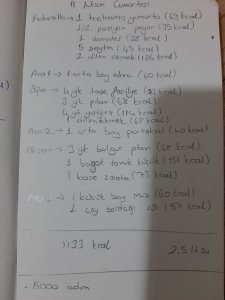 11 Nisan Cumartesi
Kahvaltı → 1 haşlanmış yumurta (49 kcal)
1/2 porsiyon peynir (35 kcal)
1 domates (28 kcal)
5 zeytin (45 kcal)
2 dilim ekmek (126 kcal)
Ara 1 → 1 orta boy elma (60 kcal)
Öğle → 4 yk taze fasulye
3 yk pilav (68 kcal)
4 yk yoğurt (114 kcal)
1 dilim ekmek (67 kcal)
Ara 2 → 1 orta boy portakal (40 kcal)
Akşam → 3 yk bulgur pilavı (68 kcal)
1 tavuk (151 kcal)
1 kase salata (73 kcal)
Ara → 1 küçük boy muz (60 kcal)
1 çay bardağı süt (53 kcal)
1133 kcal 2,5 lt su
- 5000 adım